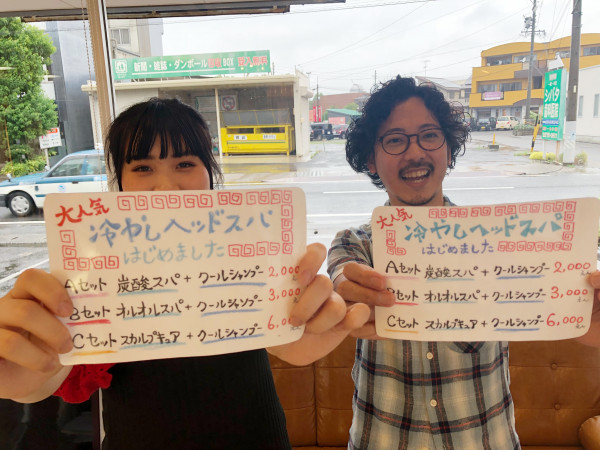 新聞・雑誌・ダンボール
BOX
大人気
冷やしヘッドスパ
はじめました
Aセット 炭酸スパ + クールシャンプー 2,000
Bセット オルオルスパ + クールシャンプー 3,000
Cセット スカルプキュア + クールシャンプー 6,000
大人気
冷やしヘッドスパ
はじめました
Aセット 炭酸スパ + クールシャンプー 2,000
Bセット オルオルスパ + クールシャンプー 3,000
Cセット スカルプキュア + クールシャンプー 6,000